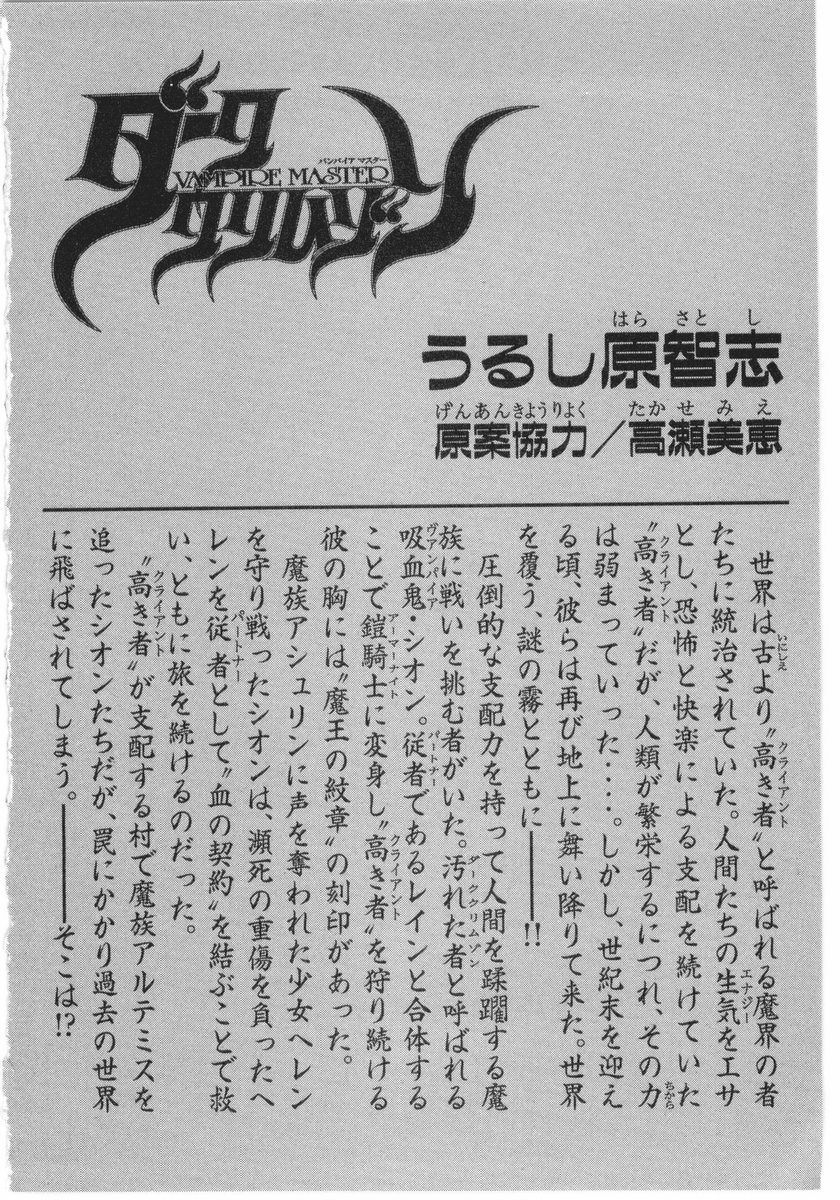 ダーク
バンパイア マスター
VAMPIRE MASTER
クリムゾン
はら さと し
うるし原智志
げんあんきようりよく たか せ み え
原案協力／高瀬美恵
世界は古より〝高き者〟と呼ばれる魔界の者
いにしえ クライアント
たちに統治されていた。人間たちの生気をエサ
エナジー
とし、恐怖と快楽による支配を続けていた
〝高き者〟だが、人類が繁栄するにつれ、その力
クライアント ちから
は弱まっていった‥‥。しかし、世紀末を迎え
る頃、彼らは再び地上に舞い降りて来た。世界
を覆う、謎の霧とともに――!!
圧倒的な支配力を持って人間を蹂躙する魔
族に戦いを挑む者がいた。汚れた者と呼ばれる
ダーククリムゾン
吸血鬼・シオン。従者であるレインと合体する
ヴァンパイア パートナー
ことで鎧騎士に変身し〝高き者〟を狩り続ける
アーマーナイト クライアント
彼の胸には〝魔王の紋章〟の刻印があった。
魔族アシュリンに声を奪われた少女ヘレン
を守り戦ったシオンは、瀕死の重傷を負ったヘ
レンを従者として〝血の契約〟を結ぶことで救
パートナー
い、ともに旅を続けるのだった。
〝高き者〟が支配する村で魔族アルテミスを
クライアント
追ったシオンたちだが、罠にかかり過去の世界
に飛ばされてしまう。――そこは!?